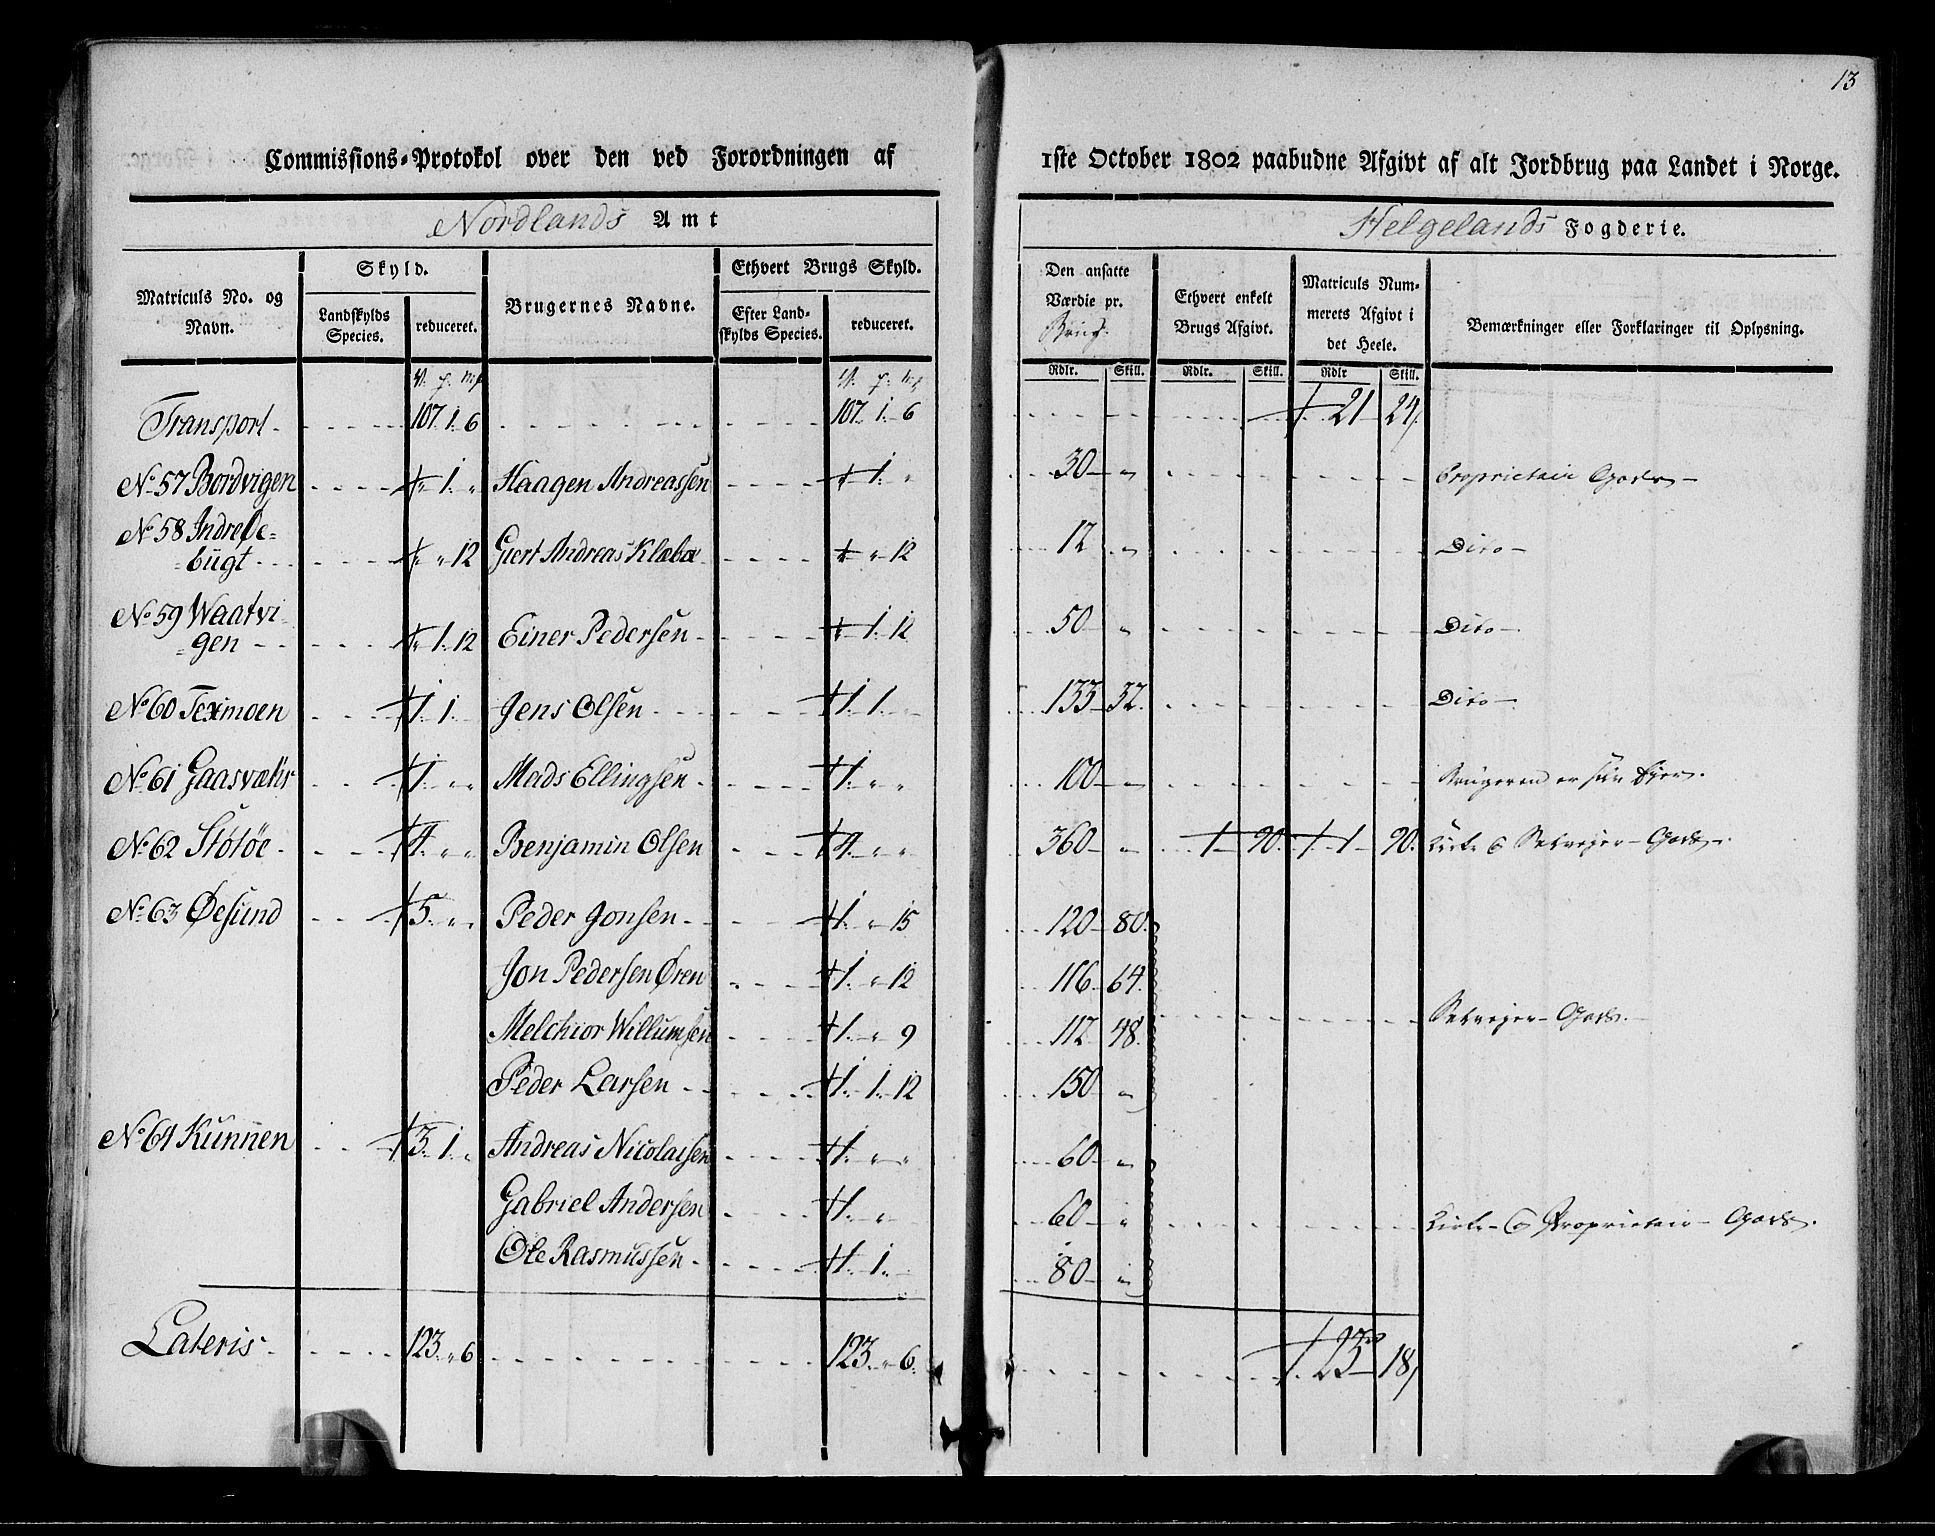 13
Commissions-Protokol over den ved Forordningen af 1ste October 1802 paabudne Afgivt af alt Jordbrug paa Landet i Norge.
Nordlands Amt Helgelands Fogderie.
Matriculs No. og Navn.
Skyld.
Landskylds Species.
reduceret.
Brugernes Navne.
Ethvert Brugs Skyld.
Efter Landskylds Species.
reduceret.
Den ansatte Værdie pr. Brug.
Rdlr. Skill.
Ethvert enkelt Brugs Afgivt.
Rdlr. Skill.
Matriculs Nummerets Afgivt i det Heele.
Rdlr Skill.
Bemærkninger eller Forklaringer til Oplysning.
Transport 107. 1. 6 107. 1. 6 21 24
No. 57 Bordvigen 1. Haagen Andreassen 1. 30 Proprietair Gods
No. 58 Indre De=
=bugt 12 Giert Andreas Klæboe 12 12 Dito
No. 59 Waatvi
=gen 1. 12 Einer Pedersen 1. 12 50 Dito
No. 60 Texmoen 1. 1. Jens Olsen 1. 1. 133 32 Dito
No. 61 Gaasvæhr 1. Mads Ellingsen 1. 100 Brugeren er sin Ejer.
No. 62 Stötöe 4. Benjamin Olsen 4. 360 1 90 1 90 Kirke & Selvejer-Gods
No. 63 Øesund 5. Peder Jonsen 1. 15 120 80
Jon Pedersen Øren 1. 12 116 64
Melchior Willumsen 1. 9 112 48 Selvejer-Gods.
Peder Larsen 1. 1. 12 150
No. 64 Kunnen 3. 1. Andreas Nicolaisen 1. 60
Gabriel Andersen 1. 60 Kirke- & Proprietair-Gods.
Ole Rasmussen 1. 1. 80
Lateris 123. 6 123. 6. 23 18